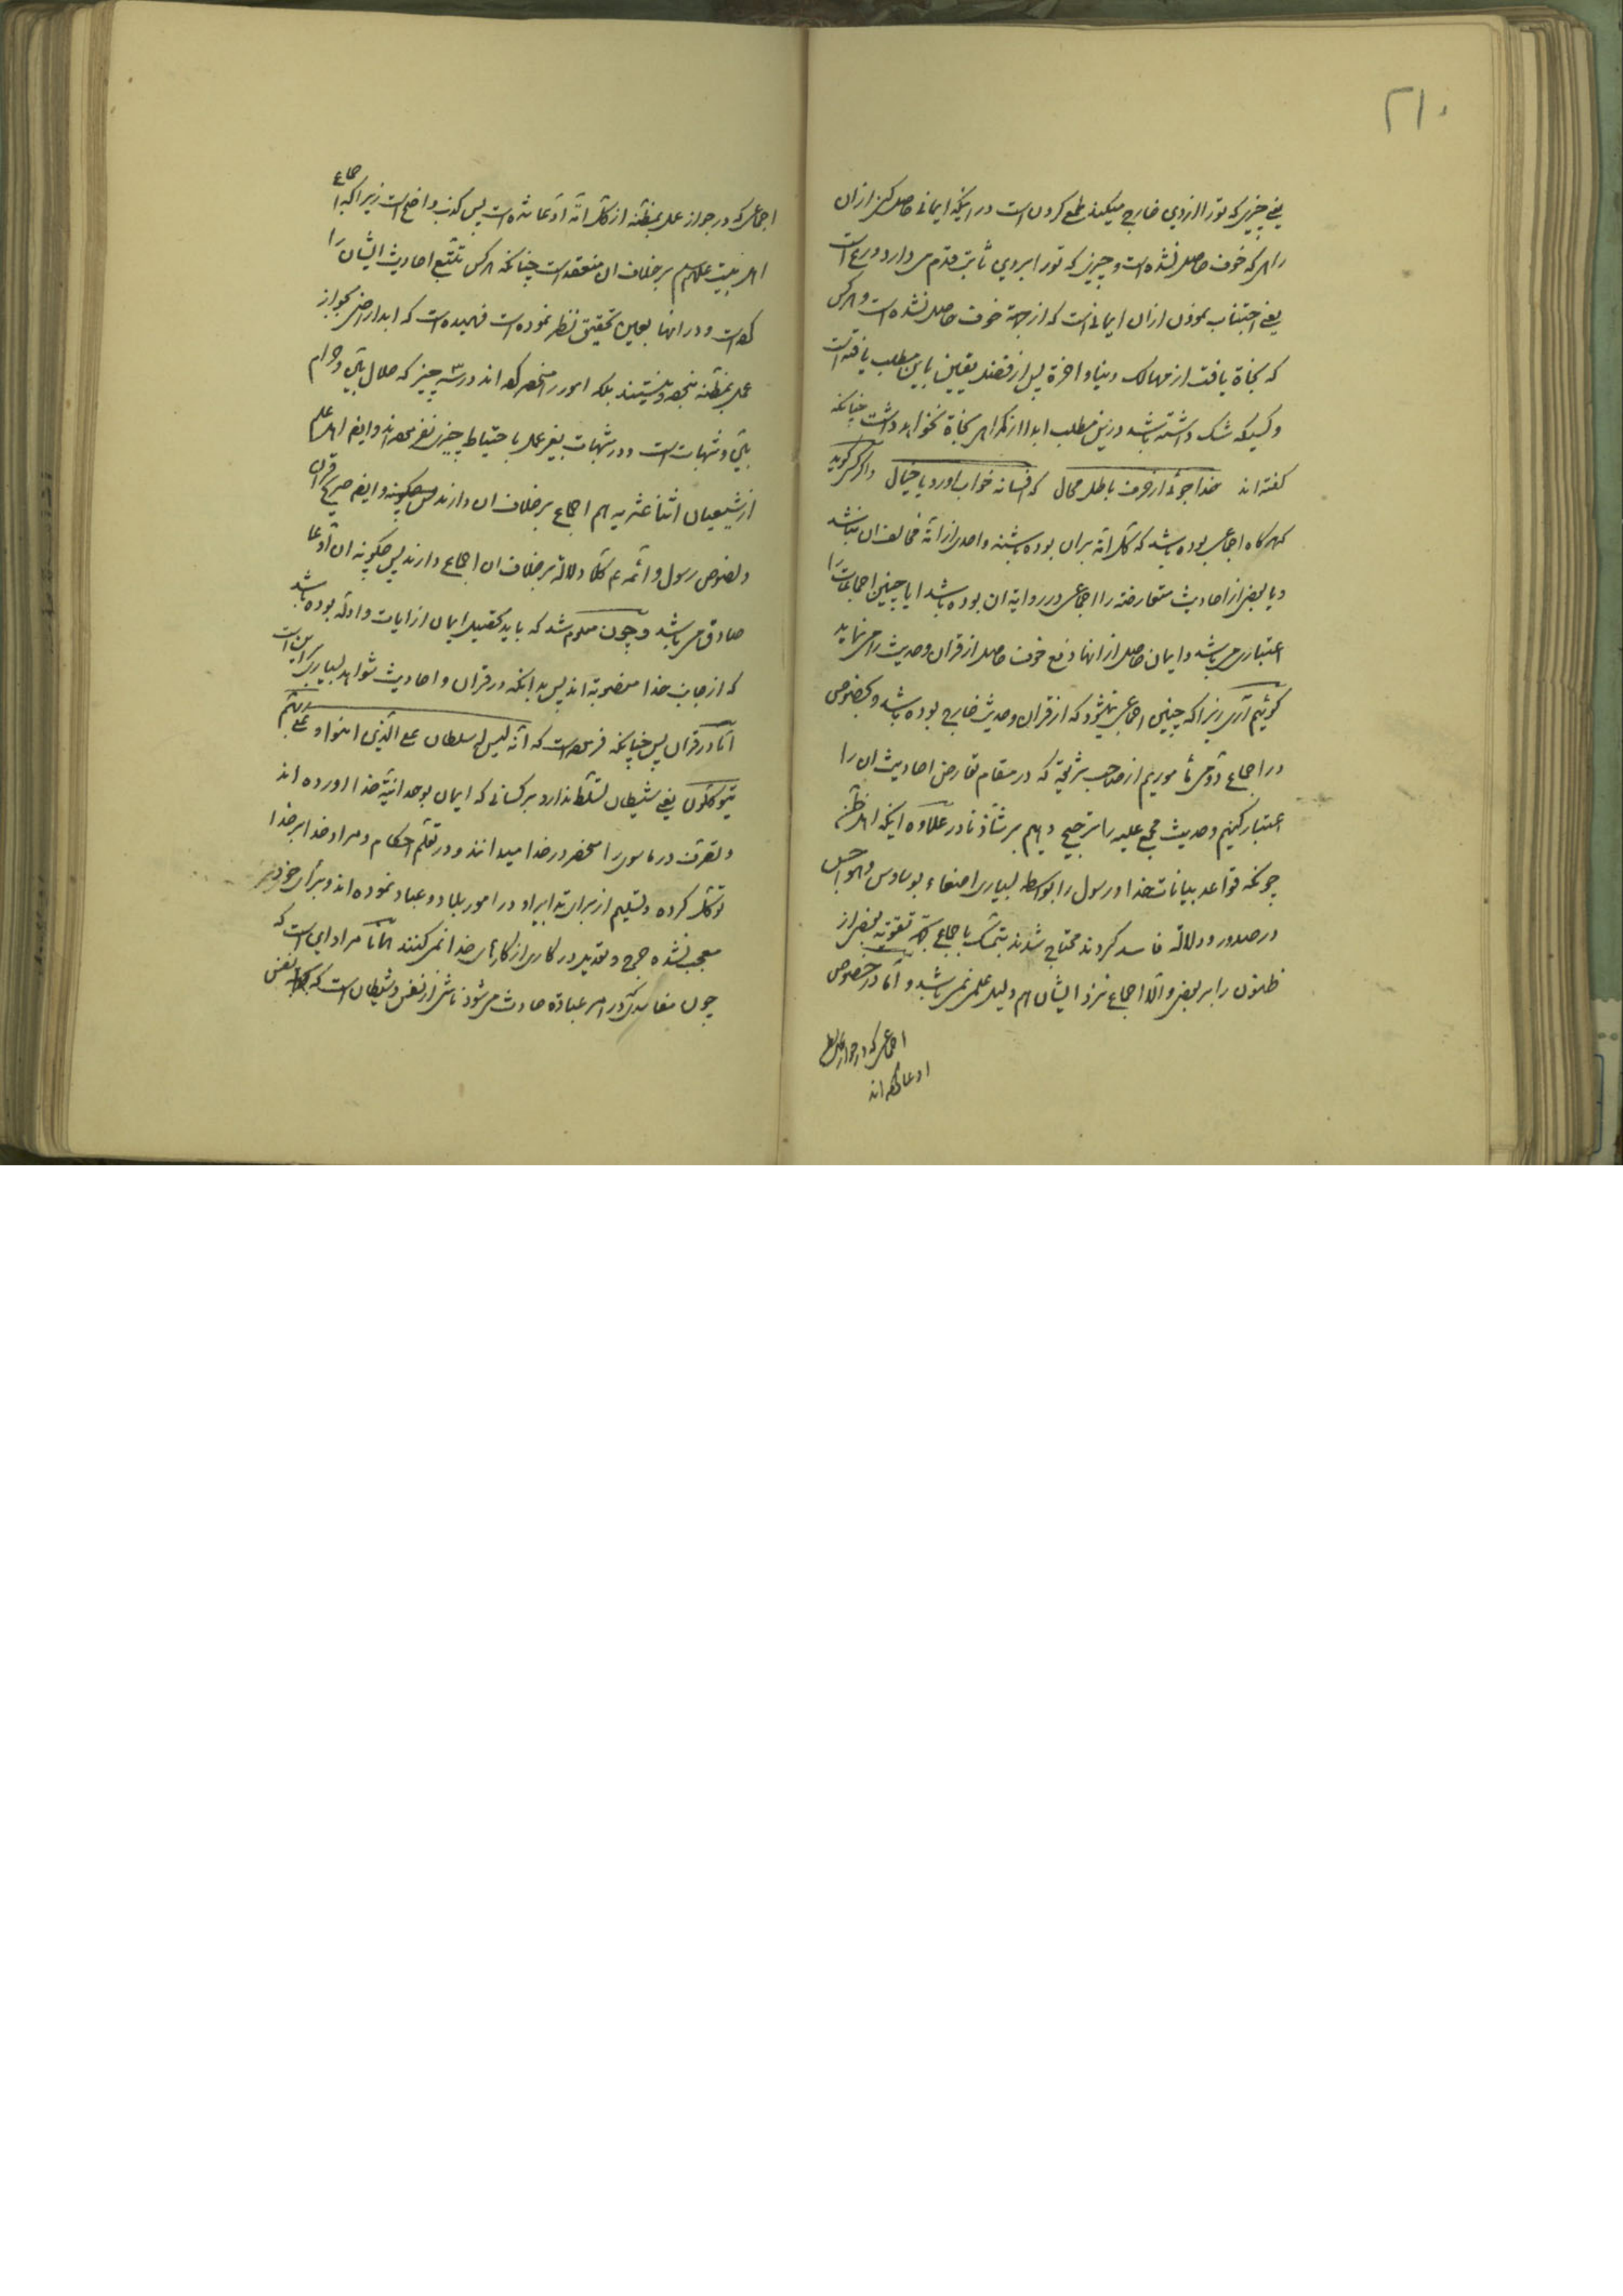 ۲۱۰
یعنی چیزی که تو را از دین خارج میکند طمع کردن است در اینکه ایمانی حاصل کنی از ان
راهی که خوف حاصل نشده است و چیزی که تو را بر دین ثابت قدم می دارد ورع است
یعنی اجتناب نمودن از ان ایمانی است که از جهة خوف حاصل نشده است و هر کس
که نجاة یافت از مهالک دنیا و اخرة پس از فضل یقین باین مطلب یافته است
و کسیکه شک داشته باشد درین مطلب ابدا از نکراهی نجاة نخواهد داشت چنانکه
گفته اند خدا جوئی از حرف باطل محال که افسانه خواب اورد یا خیال و اگر کسی گوید
که هر گاه اجماعی بوده باشد که کل امة بران بوده باشند و احدی از امة مخالف ان نباشد
و یا بعضی از احادیث متعارضه را اجماعی در روایة ان بوده باشد ایا چنین اجماعات را
اعتباری می باشد و ایمان حاصل از انها دفع خوف حاصل از قران و حدیث را می نماید
گوئیم آری زیرا که چنین اجماعی نمیشود که از قران و حدیث خارج بوده باشد و بخصوص
در اجماع دومی مأموریم از صاحب شریعة که در مقام تعارض احادیث ان را
اعتبار کنیم و حدیث مجمع علیه را ترجیح دهیم بر شاذ نادر علاوه اینکه اهل ظن
چونکه قواعد بیانات خدا و رسول را بواسطه بسیاری اصغاء بوساوس و هواجس
در صدور و دلالة فاسد کردند محتاج شدند بتمسک باجماع بجهة تقویة بعضی از
ظنون را بر بعضی و الا اجماع نزد ایشان هم دلیل علمی نمی باشد و اما در خصوص
اجماعی که در جواز عمل بظن
ادعا کرده اند
اجماعی که در جواز عمل بمظنه از کل امة ادعا شده است پس کذب واضح است زیرا که اجماع
اهل بیت علیهم السلام بر خلاف ان منعقد است چنانکه هر کس تتبع احادیث ایشان را
کرده است و در انها بعین تحقیق نظر نموده است فهمیده است که ابدا راضی بجواز
عمل بمظنه نبوده و نیستند بلکه امور را منحصر کرده اند در سه چیز که حلال بین و حرام
بین و شبهات است و در شبهات بغیر عمل باحتیاط چیزی نفرموده اند و ایضا اهل علم
از شیعیان اثنا عشریه هم اجماع بر خلاف ان دارند و ایضا صریح قران
و نصوص رسول و ائمه ع کلا دلالة بر خلاف ان اجماع دارند پس چگونه ان ادعا
صادق می باشد و چون معلوم شد که باید تحصیل ایمان از ایات و ادله بوده باشد
که از جانب خدا منصوبة اند پس بدانکه در قران و احادیث شواهد بسیار بر این است
اما در قران پس چنانکه فرموده است که انه لیس له سلطان علی الذین امنوا و علی ربهم
یتوکلون یعنی شیطان تسلط ندارد بر کسانی که ایمان بوحدانیة خدا اورده اند
و تصرف در ماسوی را منحصر در خدا میدانند و در تعلم احکام و مراد خدا بر خدا
توکل کرده و تسلیم از برای تدابیر او در امور بلاد و عباد نموده اند و برأی خود
معجب نشده جرح و تعدیل در کاری از کارهای خدا نمی کنند اما مراد این است که
چون مفاسدی که در امر عبادة حادث می شود ناشی از نفس و شیطان است که نفس